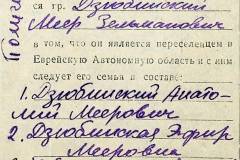 ся гр. Дзюблинский
Меер Зельманович
в том, что он является переселенцем в
Еврейскую Автономную область и с ним
следует его семья в составе:
1. Дзюблинский Анато-
лий Меерович
2. Дзюблинская Эфир
Мееровна